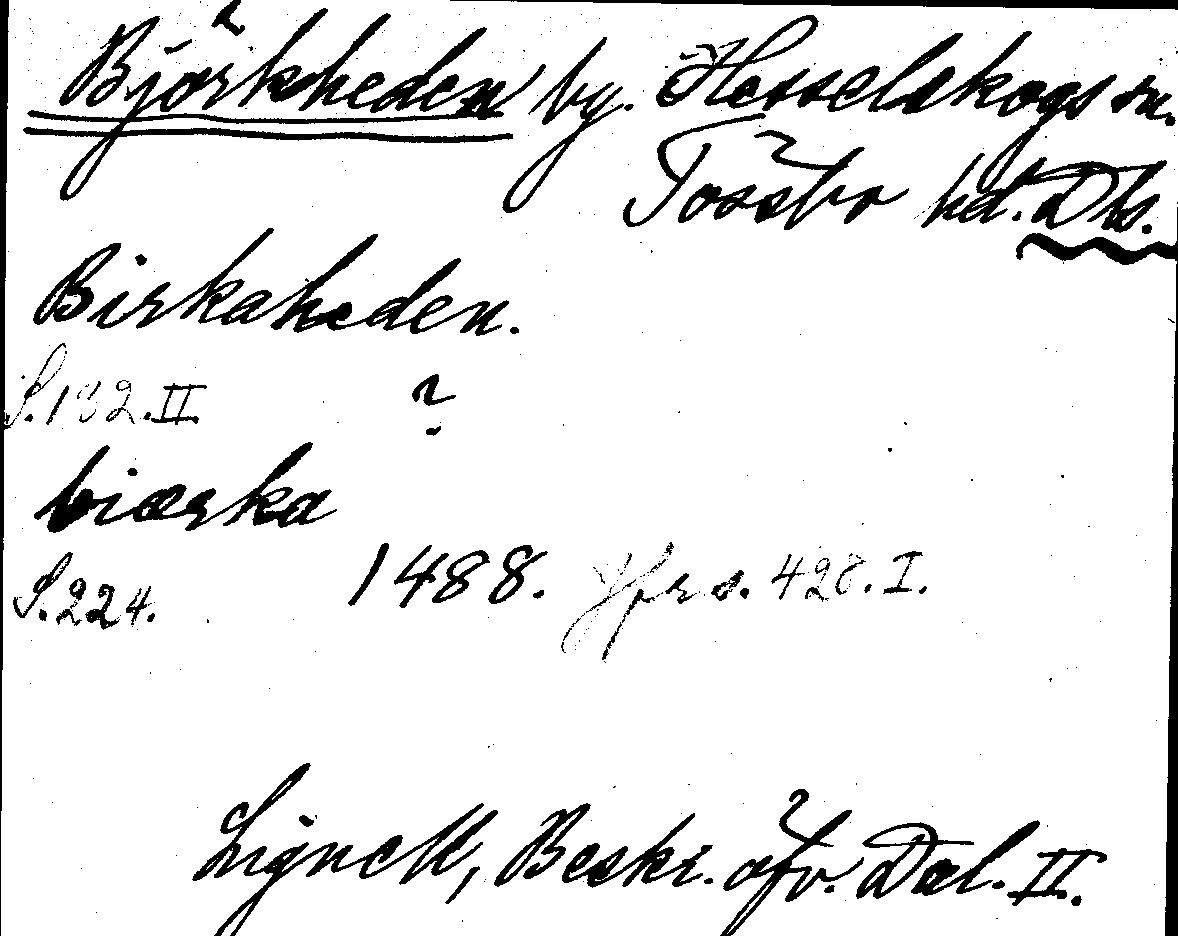 Björkheden by. Hesselskogs sn.
Tössbo hd. Dls.
Birkaheden.
S. 192. II. ?
biærka
S. 224. 1488. Jfr s. 428. I.
Lignell, Beskr. öfv. Dal. II.